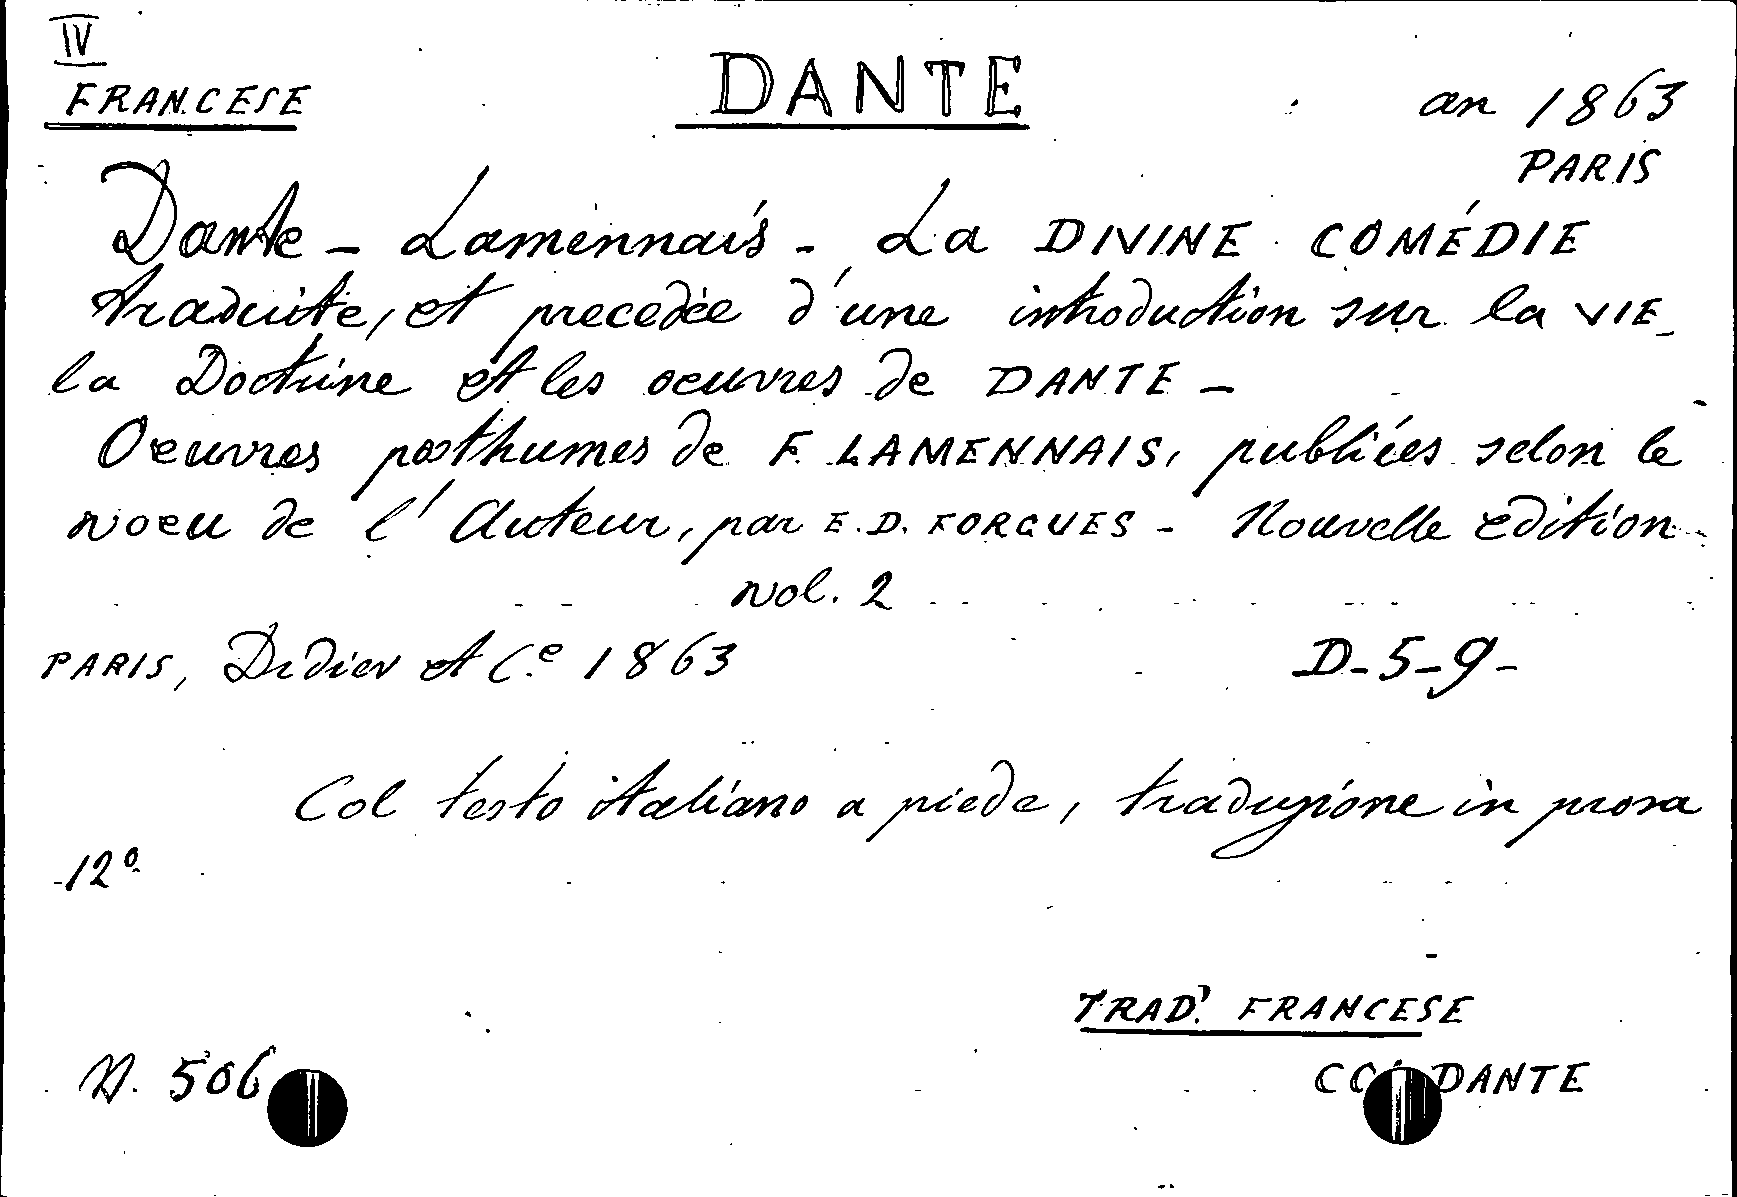 IV
FRANCESE
DANTE
an 1863
PARIS
Dante - Lamennais - La DIVINE COMÉDIE
traduite, et precedée d'une introduction sur la VIE
la Doctrine et les oeuvres de DANTE -
Oeuvres posthumes de F. LAMENNAIS, publiées selon le
voeu de l'Auteur, par E. D. FORGUES - Nouvelle edition
vol. 2
PARIS, Didier et C.e 1863
D-5-9-
Col testo italiano a piede, traduzione in prosa
12º
TRAD. FRANCESE
N. 506
DANTE